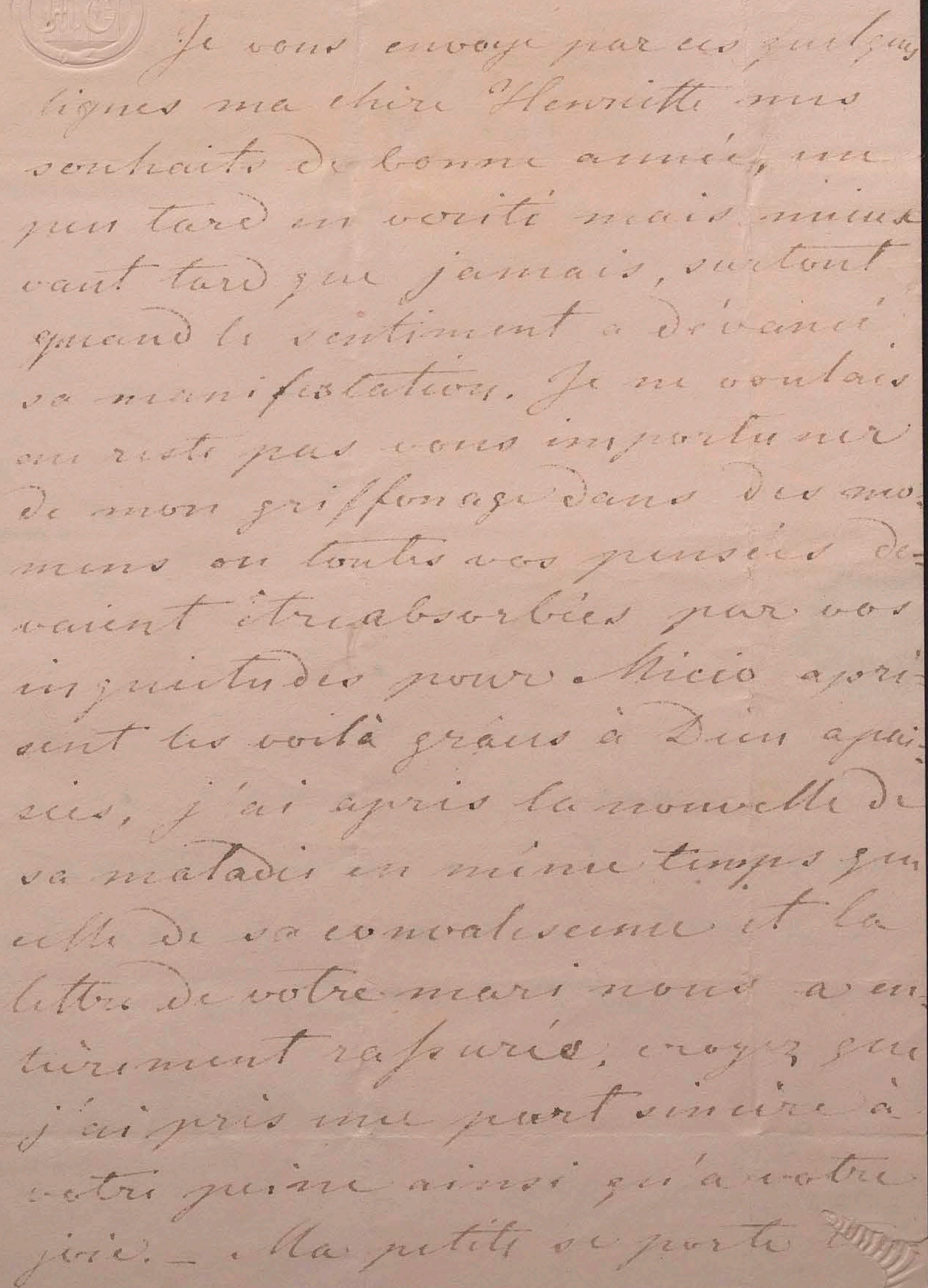 Je vous envoye par ces quelques
lignes ma chère Henriette mes
souhaits de bonne année, un
peu tard en verité mais mieux
vaut tard que jamais, surtout
quand le sentiment a dévancé
sa manifestation. Je ne voulais
au reste pas vous importuner
de mon griffonage dans des mo-
mens ou toutes vos pensées de=
vaient être absorbées par vos
inquietudes pour Micio apri=
sent les voilà grâces à Dieu apai=
sées, j'ai apris la nouvelle de
sa maladie en même temps que
celle de sa convalescence et la
lettre de votre mari nous a en=
tièrement rassurés, croyez que
j'ai pris une part sincère à
votre peine ainsi qu'a votre
joie. _ Ma petite se porte